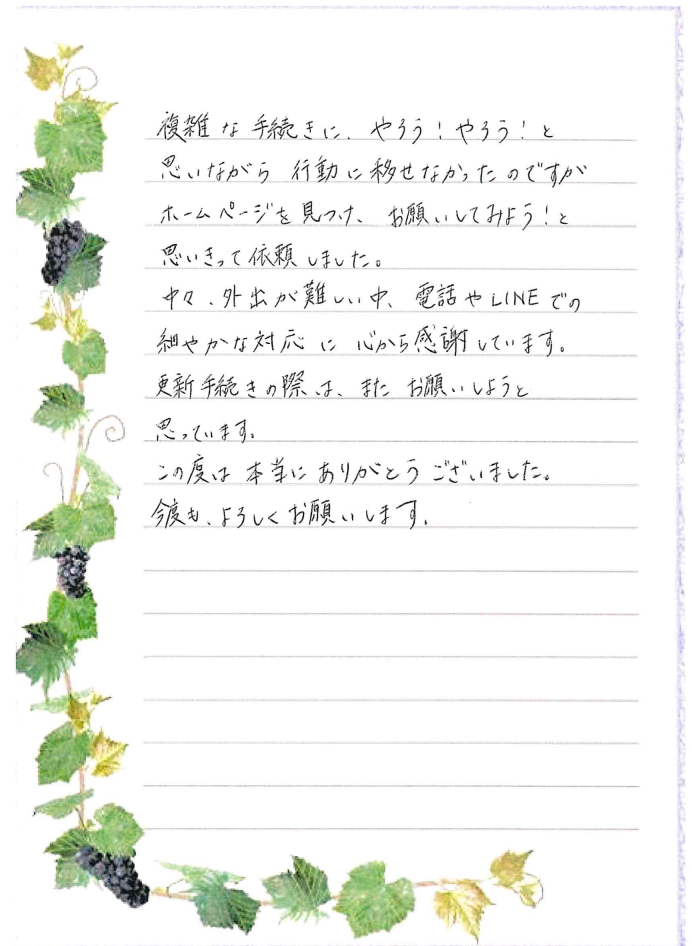 複雑な手続きに、やろう!やろう!と
思いながら 行動に移せなかったのですが
ホームページを見つけ、お願いしてみよう!と
思いきって依頼しました。
中々、外出が難しい中、電話やLINEでの
細やかな対応に 心から感謝しています。
更新手続きの際は、また お願いしようと
思っています。
この度は 本当に ありがとう ございました。
今度も、よろしく お願いします。